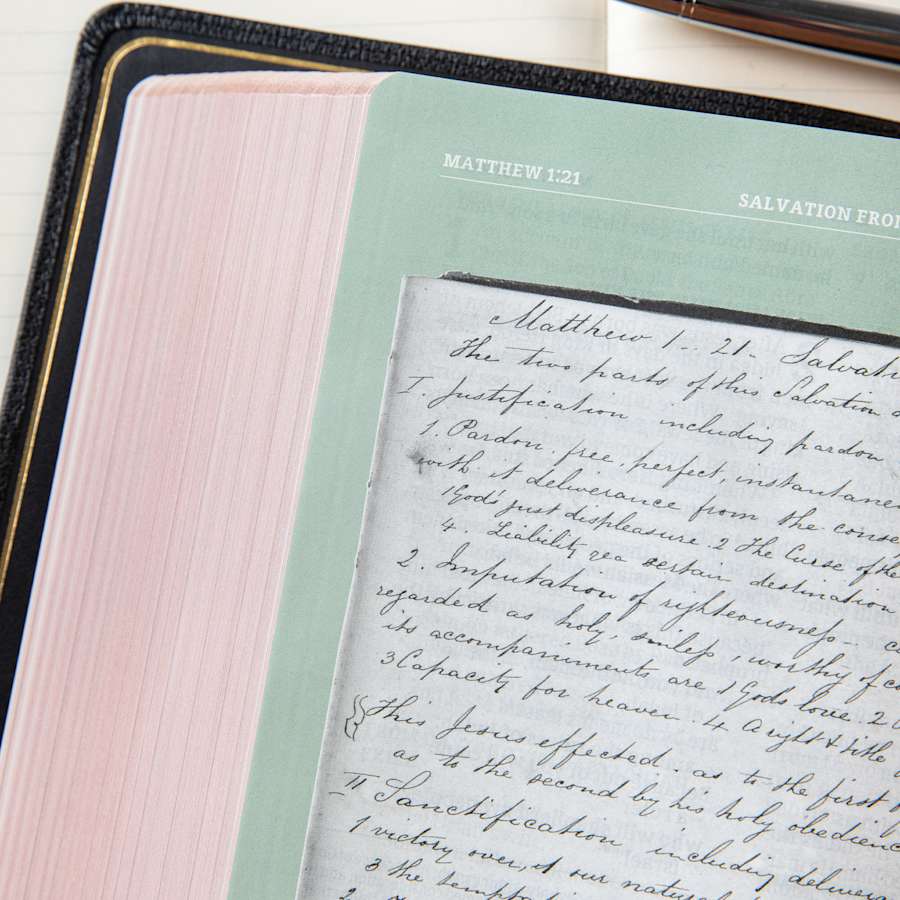 MATTHEW 1:21
SALVATION FRO
Matthew 1 - 21 - Salvati
The two parts of this Salvation a
I. Justification including pardon
1. Pardon. free, perfect, instantane
with it deliverance from the conse
1 God's just displeasure. 2 The Curse of the
4. Liability certain destination
2. Imputation of righteousness - c
regarded as holy, sinless, worthy of co
its accompaniments are 1 Gods love. 2
3 Capacity for heaven. 4 A right & title
This Jesus effected. as to the first
as to the second by his holy obedienc
II Sanctification including delivera
1 victory over, of our natural
3 the temptat
2